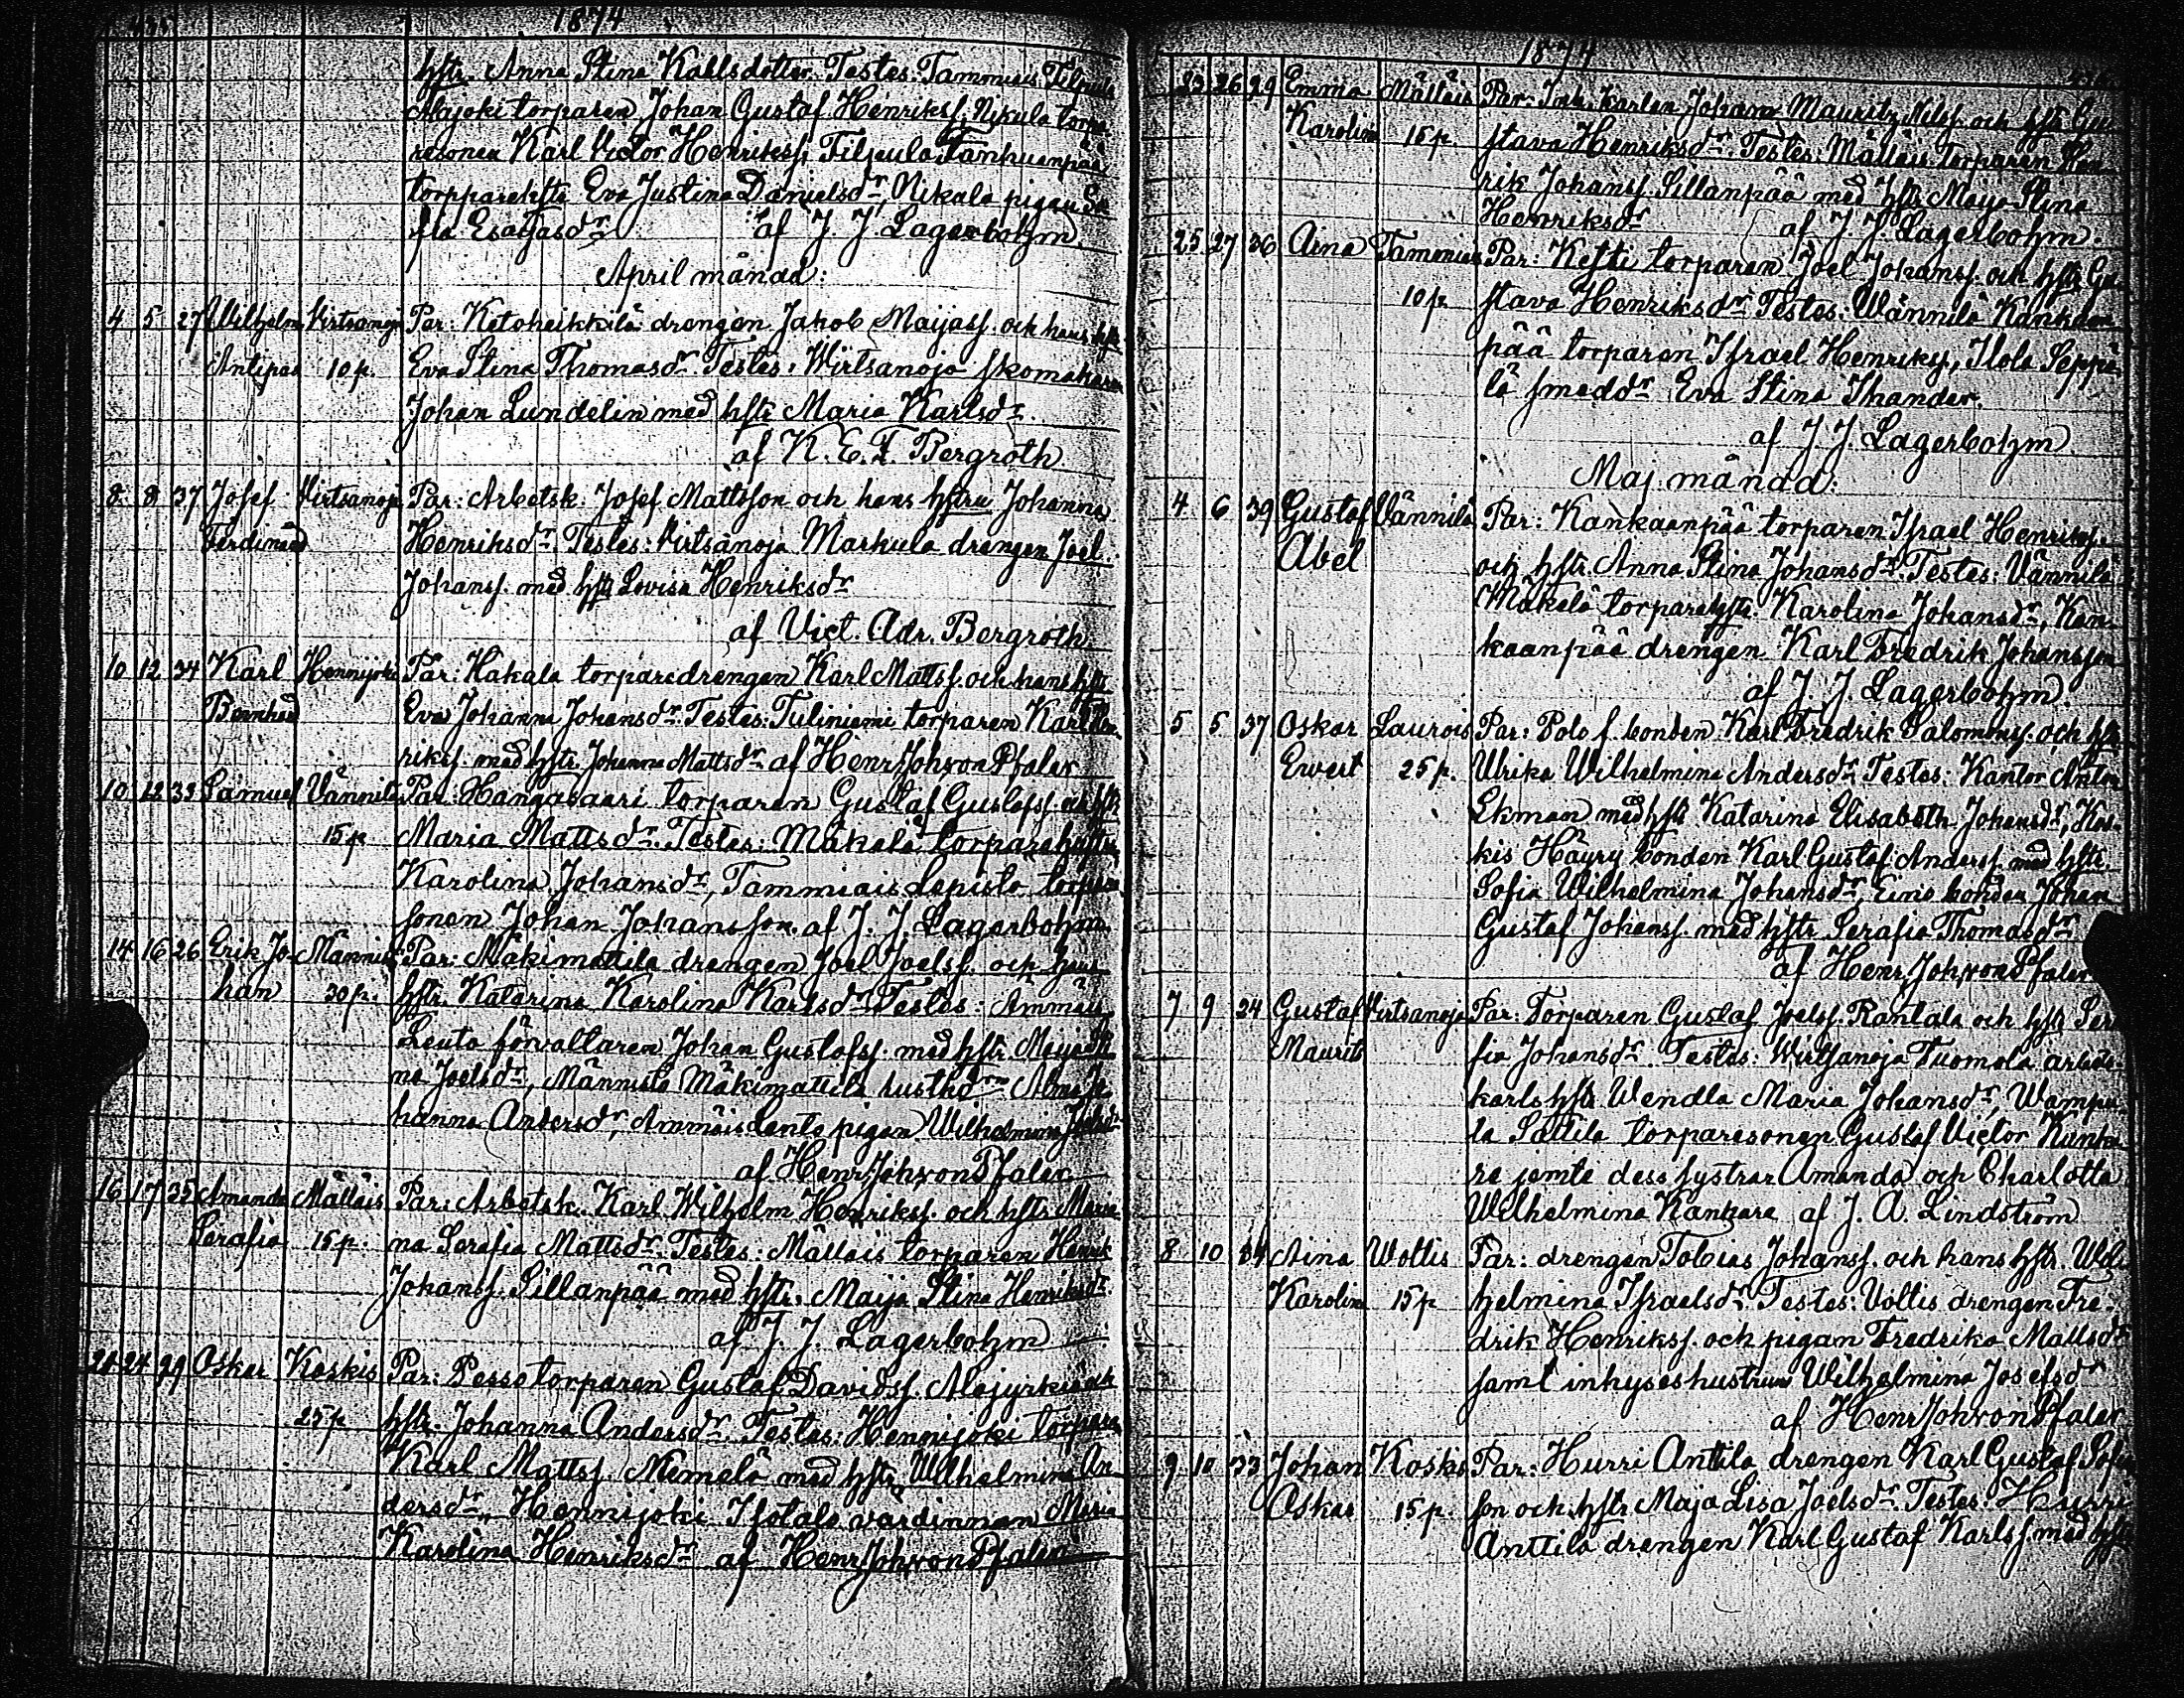 1874
hstr. Anna Stina Kallsdotter. Testes: Tammiais Filpula
Alajoki torparen Johan Gustaf Henrikss, Nikula torpa
resonen Karl Victor Henrikss, Filpula Tanhuanpää
torpparehstr Eva Justina Danielsdr, Nikala pigan So
fia Esaiasdr af J. J. Lagerbohm.
April månad:
4 5 27 Wilhelm Virtsanoja Par: Ketoheikkilä drengen Jakob Maijass. och hans hstr.
Antipas 10 p. Eva Stina Thomasdr. Testes: Wirtsanoja skomakaren
Johan Lundelin med hstr Maria Karlsdr.
af K. E. F. Bergroth
8 8 37 Josef Virtsanoja Par: Arbetsk. Josef Mattsson och hans hstru Johanna
Ferdinand Henriksdr. Testes: Virtsanoja Markula drengen Joel
Johanss. med hstr Lovisa Henriksdr
af Vict. Adr. Bergroth
10 12 34 Karl Hennijoki Par: Hakala torparedrengen Karl Matts. och hans hstr
Bernhard Eva Johanna Johansdr. Testes: Tuliniemi torparen Karl Hen
rikss. med hstr. Johanna Mattsdr. af Henr. Joh. von Pfaler
10 12 33 Samuel Vännilä Par. Hangasaari torparen Gustaf Gustafss. och hstr
15 p Maria Mattsdr. Testes: Mäkelä torparehstr
Karolina Johansdr, Tammiais Lepistö torpare
sonen Johan Johansson. af J. J. Lagerbohm
14 16 26 Erik Jo- Männistö Par: Mäkimattila drengen Joel Joelss. och hans
han 30 p. hstr. Katarina Karolina Karlsdr. Testes: Ämmäis
Lenta förvaltaren Johan Gustafss. med hstr. Maja Sti
na Joelsdr, Männistö Mäkimattila rusthdrn Alma Jo
hanna Andersdr, Ämmäis Lenta pigan Wilhelmina Joelsdr
af Henr. Joh. von Pfaler
16 17 35 Amanda Mälläis Par: Arbetsk. Karl Wilhelm Henrikss. och hstr Maria
Serafia 15 p. na Serafia Mattsdr. Testes: Mälläis torparen Henrik
Johanss. Sillanpää med hstr. Maija Stina Henriksdr.
af J. J. Lagerbohm
24 29 Oskar Koskis Par: Pesse torparen Gustaf Davidss. Alajyrkis och
25 p hstr. Johanna Andersdr. Testes: Hennijoki torparen
Karl Mattss. Niemelä med hstr Wilhelmina An
dersdr, Hennijoki Isotalo värdinnan Maria
Karolina Henriksdr af Henr. Joh. von Pfaler
1874
23 26 29 Emma Mälläis Par: Inh. karlen Johan Mauritz Nilss. och hstr Gu
Karolina 15 p. stava Henriksdr. Testes: Mälläis torparen Hen
rik Johanss. Sillanpää med hstr Maja Stina
Henriksdr af J. J. Lagerbohm.
25 27 36 Aina Tammiais Par: Kesti torparen Joel Johanss. och hstr Gu
10 p. stava Henriksdr. Testes: Wännilä Kankaan
pää torparen Israel Henrikss, Ilola Seppä
lä smeddr. Eva Stina Thander.
af J. J. Lagerbohm
Maj månad:
4 6 39 Gustaf Vännilä Par: Kankaanpää torparen Israel Henrikss.
Abel och hstr. Anna Stina Johansdr. Testes: Vännilä
Mäkelä torparehstr. Karolina Johansdr, Kan-
kaanpää drengen Karl Fredrik Johansson
af J. J. Lagerbohm
5 5 37 Oskar Laurois Par: Polo s. bonden Karl Fredrik Salomonss. och hstr
Evert 25 p. Ulrika Wilhelmina Andersdr. Testes: Kantor Anton
Ekman med hstr Katarina Elisabeth Johansdr, Kos-
kis Häyry bonden Karl Gustaf Anderss. med hstr.
Sofia Wilhelmina Johansdr, Eino bonden Johan
Gustaf Johanss. med hstr Serafia Thomasdr
af Henr. Joh. von Pfaler
7 9 24 Gustaf Virtsanoja Par: Torparen Gustaf Joelss. Rantala och hstr Ser
Maurits fia Johansdr. Testes: Wirtsanoja Tuomola arbets-
karls hstr Wendla Maria Johansdr, Wampu
la Sattila torparesonen Gustaf Victor Kanka
re jemte dess systrar Amanda och Charlotta
Wilhelmina Kankare af J. A. Lindström
8 10 34 Aina Wottis Par: drengen Tobias Johanss. och hans hstr. Wil
Karolina 15 p helmina Israelsdr. Testes: Voltis drengen Fre-
drik Henrikss. och pigan Fredrika Mattsdr
samt inhyseshustrun Wilhelmina Josefsdr
af Henr. Joh. von Pfaler
9 10 33 Johan Koskis Par: Hurri Antila drengen Karl Gustaf
Oskar 15 p. son och hstr. Maja Lisa Joelsdr. Testes: Hurri
Anttila drengen Karl Gustaf Karlss. med hstr